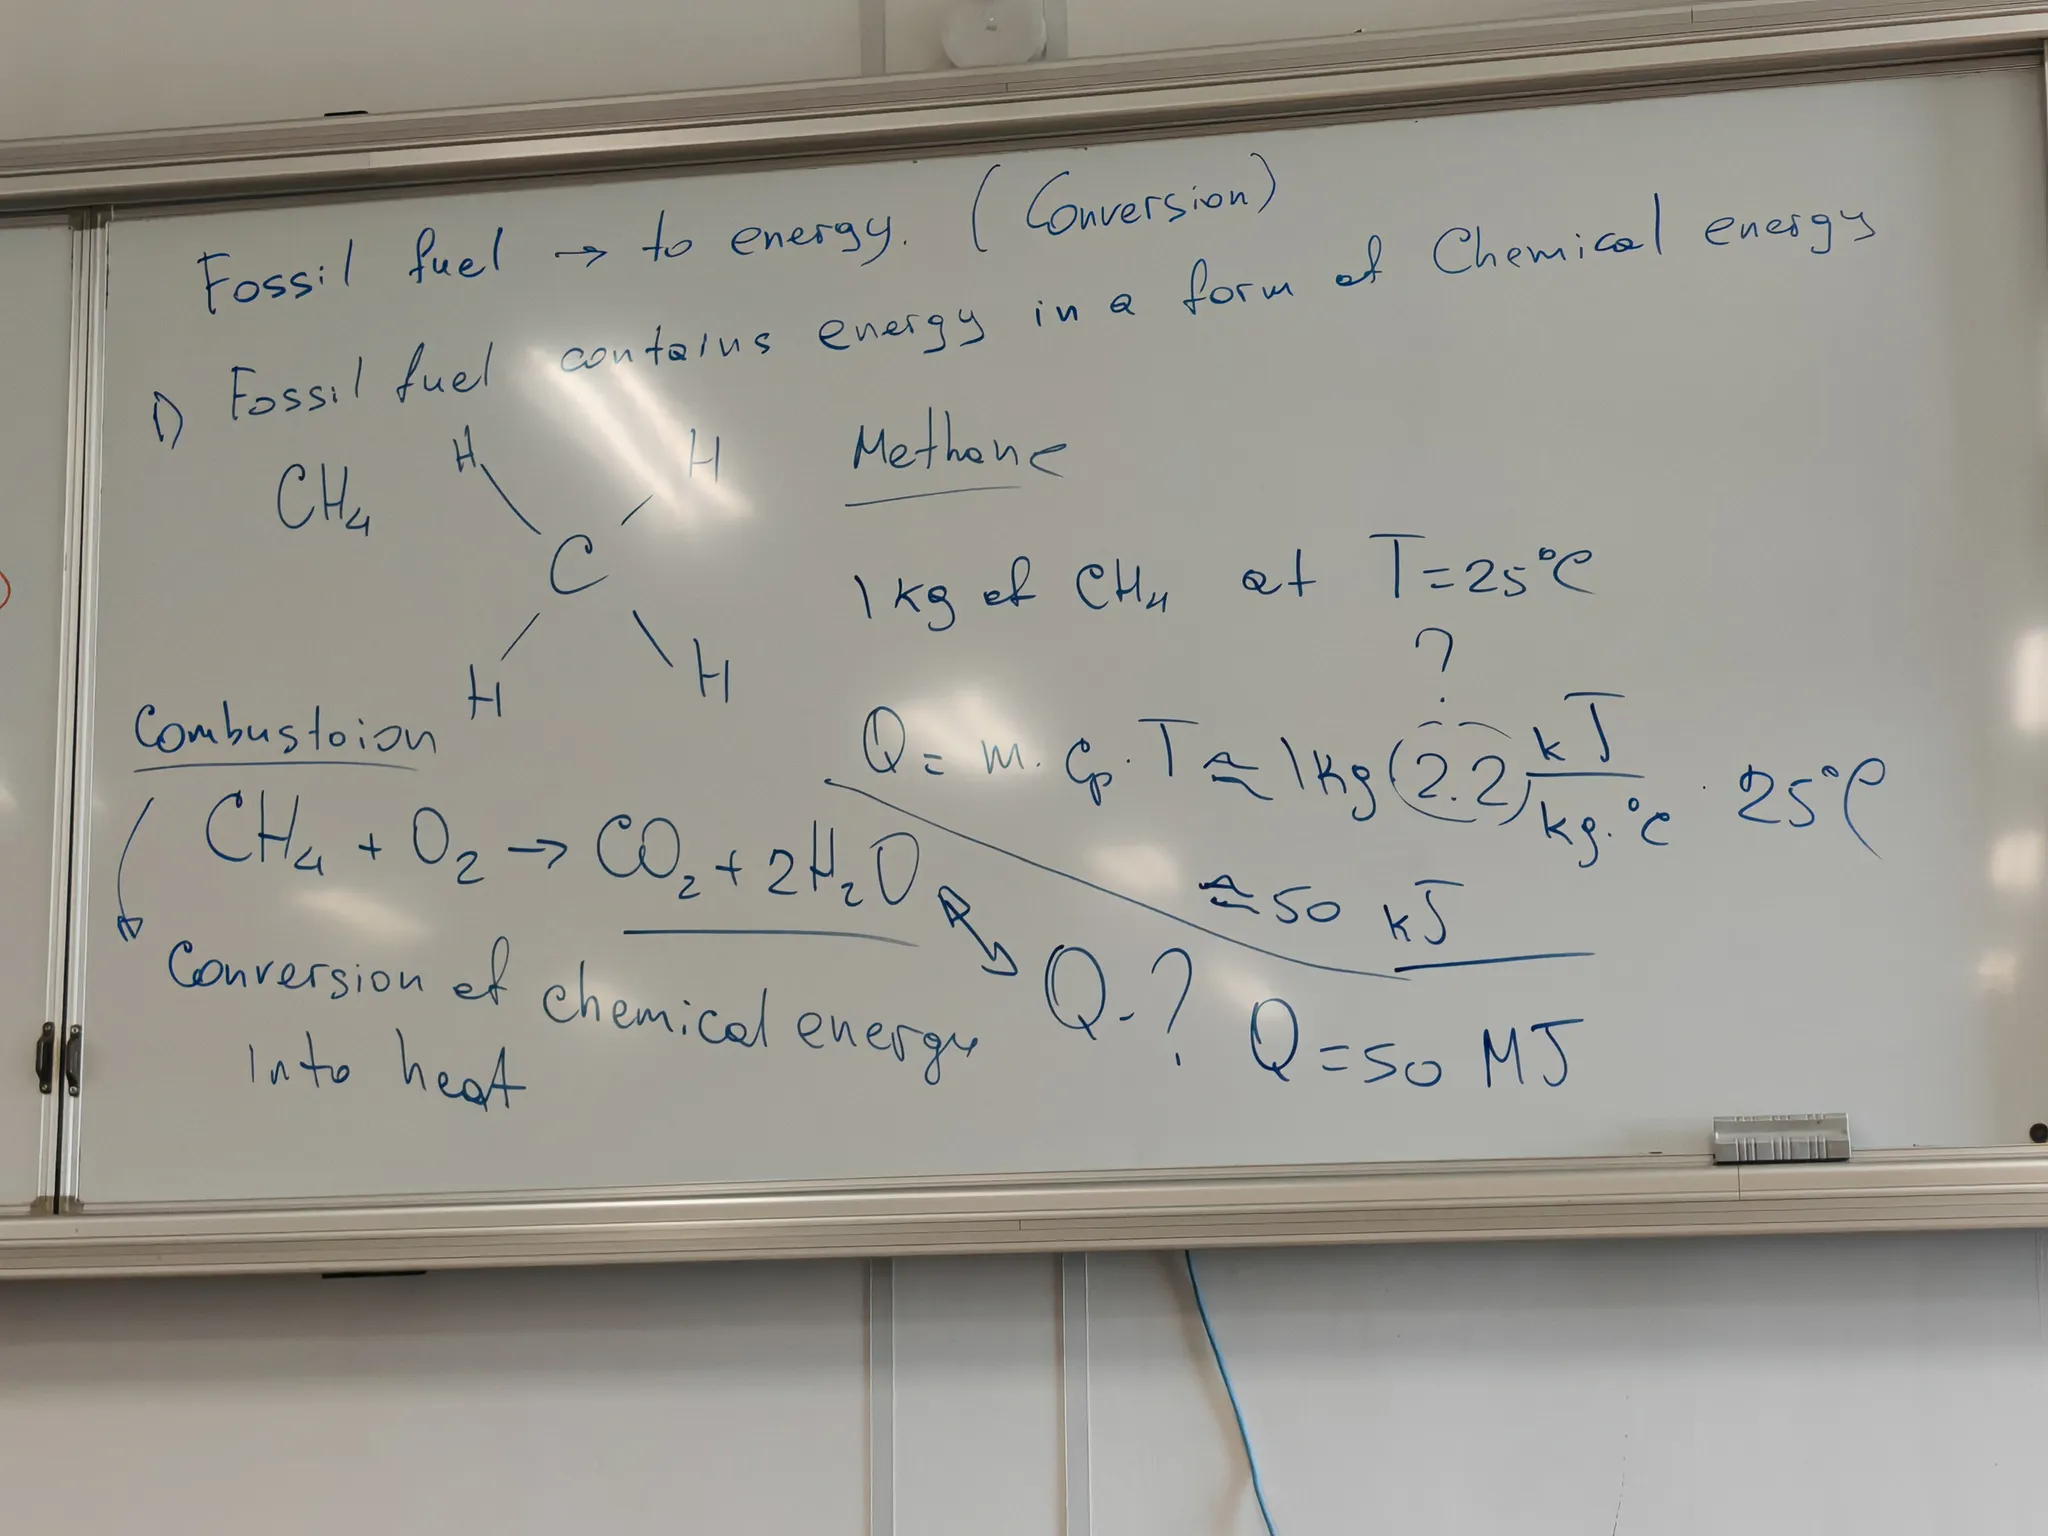 Fossil fuel → to energy. (Conversion)
1) Fossil fuel contains energy in a form of Chemical energy
CH₄
H H
C
H H
Methane
1 kg of CH₄ at T=25°C
?
Q = m. Cp. T ≈ 1kg (2.2) kJ/kg.°C · 25°C
≈ 50 kJ
Combustoion
CH₄ + O₂ → CO₂ + 2H₂O
Conversion of chemical energy
into heat
Q-? Q=50 MJ